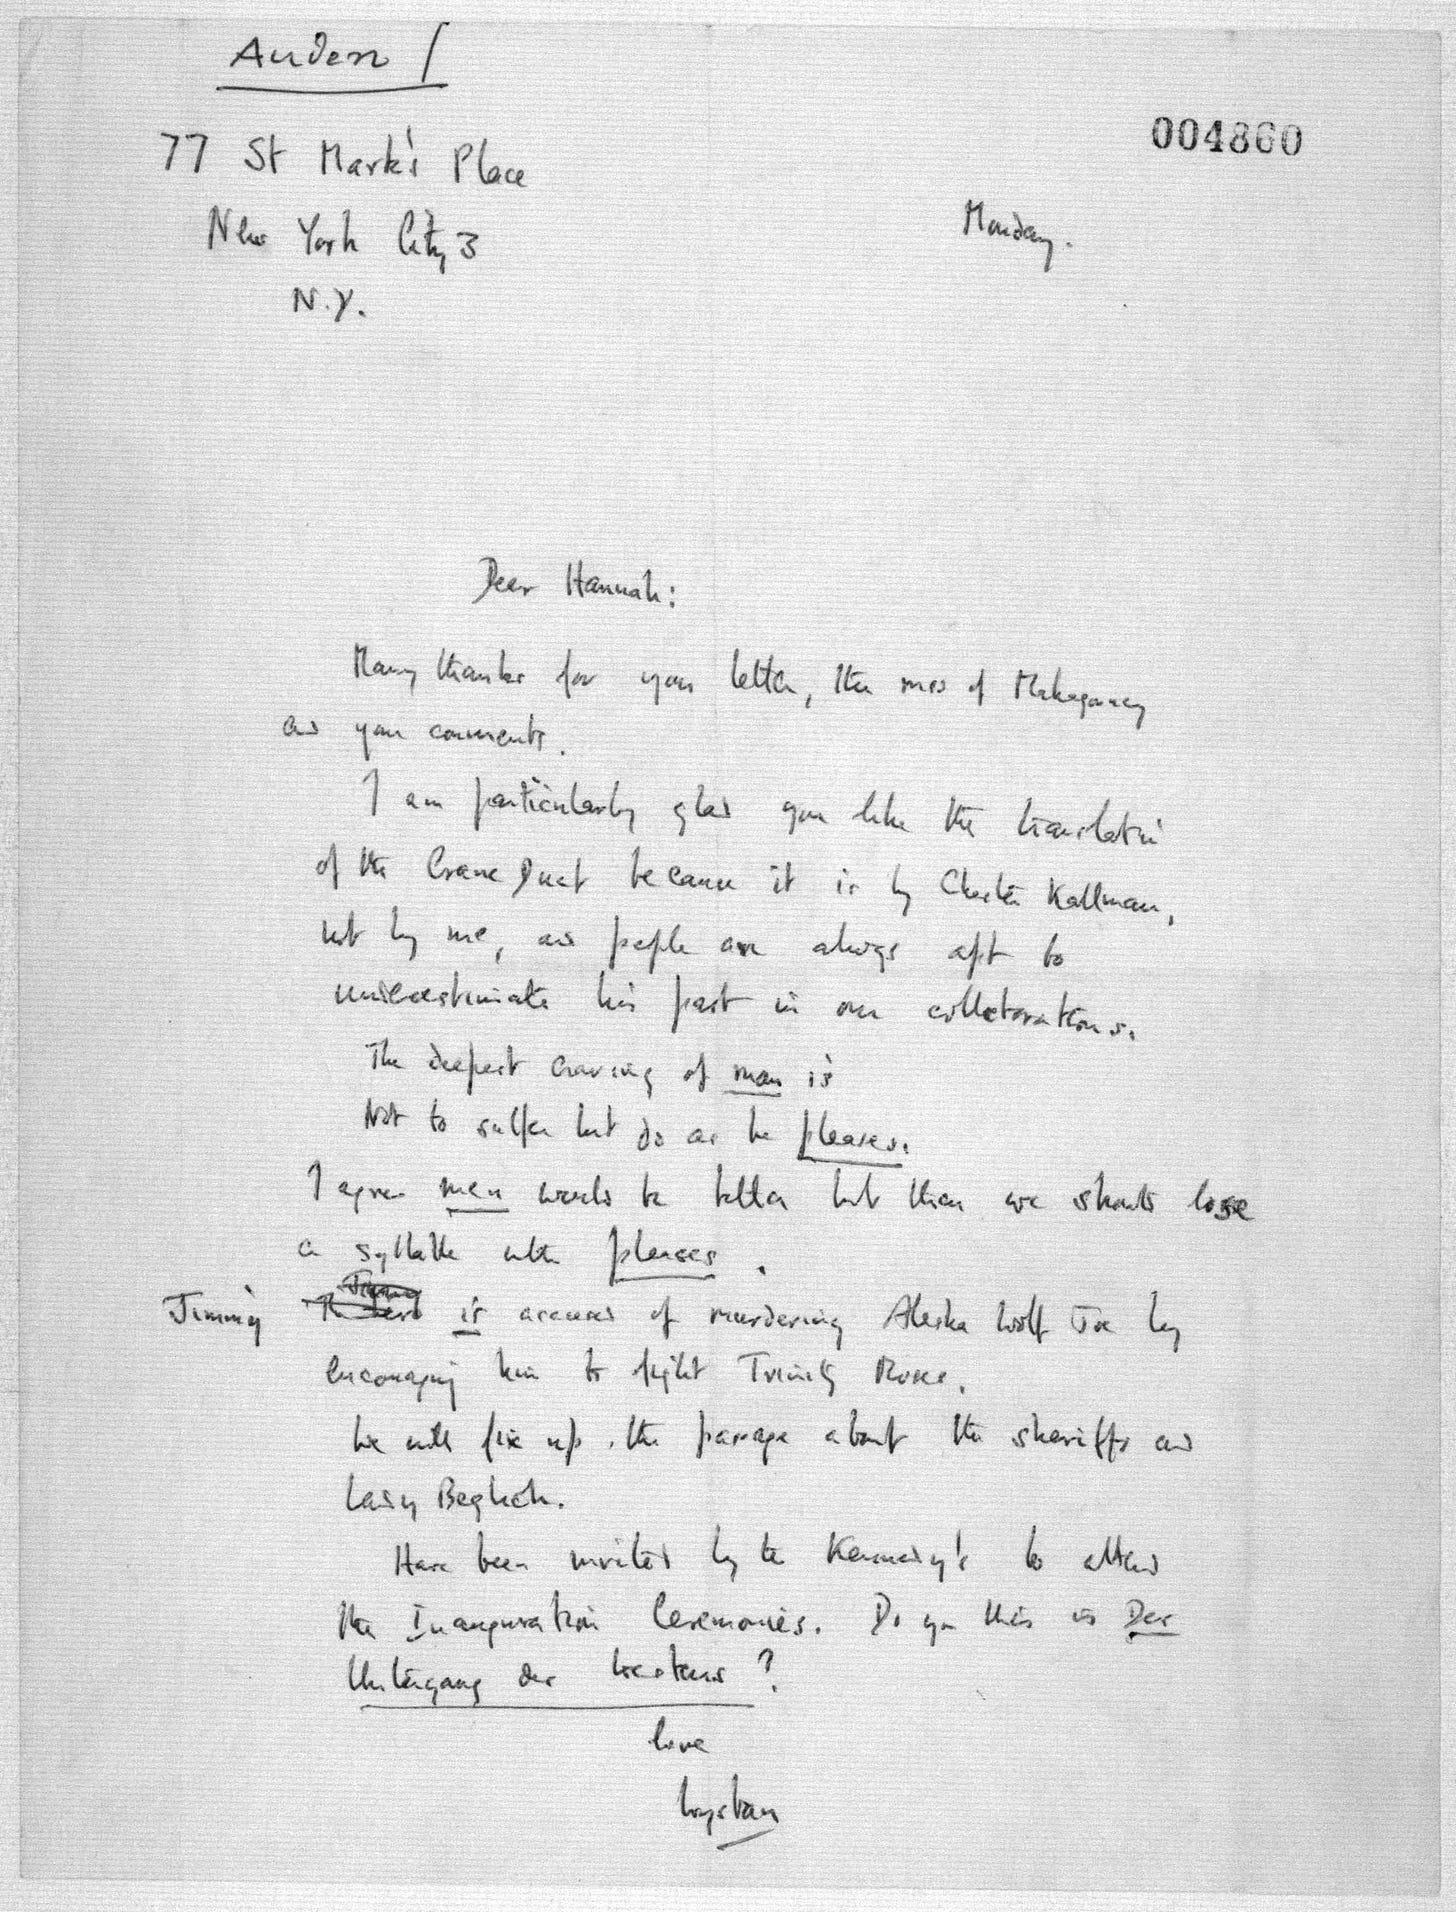 Auden /
004860
77 St Mark's Place
New York City 3
N.Y.
Monday.
Dear Hannah:
Many thanks for your letter, the mss of Mahagonny
and your comments.
I am particularly glad you like the translation
of the Crane Duet because it is by Chester Kallman,
not by me, and people are always apt to
underestimate his part in our collaborations.
The deepest craving of man is
Not to suffer but do as he pleases.
I agree men would be better but then we should lose
a syllable with pleases.
Jimmy is accused of murdering Alaska Wolf Joe by
encouraging him to fight Trinity Moses.
We will fix up the passage about the sheriffs and
Lady Begbick.
Have been invited by the Kennedy's to attend
the Inauguration Ceremonies. Do you think is Der
Untergang des Westens?
love
Wystan